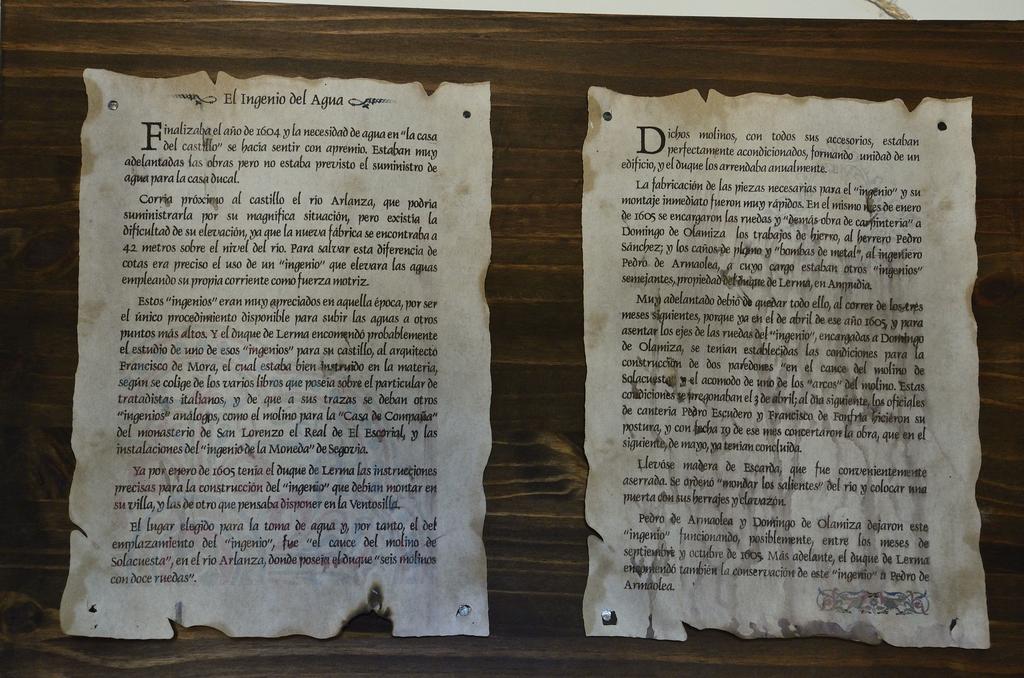 El Ingenio del Agua
Finalizaba el año de 1604 y la necesidad de agua en "la casa
del castillo" se hacía sentir con apremio. Estaban muy
adelantadas las obras pero no estaba previsto el suministro de
agua para la casa ducal.
Corría próximo al castillo el río Arlanza, que podría
suministrarla por su magnífica situación, pero existía la
dificultad de su elevación, ya que la nueva fábrica se encontraba a
42 metros sobre el nivel del río. Para salvar esta diferencia de
cotas era preciso el uso de un "ingenio" que elevara las aguas
empleando su propia corriente como fuerza motriz.
Estos "ingenios" eran muy apreciados en aquella época, por ser
el único procedimiento disponible para subir las aguas a otros
puntos más altos. Y el duque de Lerma encomendó probablemente
el estudio de uno de esos "ingenios" para su castillo, al arquitecto
Francisco de Mora, el cual estaba bien instruido en la materia,
según se colige de los varios libros que poseía sobre el particular de
tratadistas italianos, y de que a sus trazas se deban otros
"ingenios" análogos, como el molino para la "Casa de Compaña"
del monasterio de San Lorenzo el Real de El Escorial, y las
instalaciones del "ingenio de la Moneda" de Segovia.
Ya por enero de 1605 tenía el duque de Lerma las instrucciones
precisas para la construcción del "ingenio" que debían montar en
su villa, y las de otro que pensaba disponer en la Ventosilla.
El lugar elegido para la toma de agua y, por tanto, el del
emplazamiento del "ingenio", fue "el cauce del molino de
Solacuesta", en el río Arlanza, donde poseía el duque "seis molinos
con doce ruedas".
Dichos molinos, con todos sus accesorios, estaban
perfectamente acondicionados, formando unidad de un
edificio, y el duque los arrendaba anualmente.
La fabricación de las piezas necesarias para el "ingenio" y su
montaje inmediato fueron muy rápidos. En el mismo mes de enero
de 1605 se encargaron las ruedas y "demás obra de carpintería" a
Domingo de Olamiza los trabajos de hierro, al herrero Pedro
Sánchez; y los caños de plomo y "bombas de metal", al ingeniero
Pedro de Armaolea, a cuyo cargo estaban otros "ingenios"
semejantes, propiedad del duque de Lerma, en Ampudia.
Muy adelantado debió de quedar todo ello, al correr de los tres
meses siguientes, porque ya en el de abril de ese año 1605, y para
asentar los ejes de las ruedas del "ingenio", encargadas a Domingo
de Olamiza, se tenían establecidas las condiciones para la
construcción de dos paredones "en el cauce del molino de
Solacuesta" y el acomodo de uno de los "arcos" del molino. Estas
condiciones se pregonaban el 3 de abril; al día siguiente, los oficiales
de cantería Pedro Escudero y Francisco de Fonfría hicieron su
postura, y con fecha 19 de ese mes concertaron la obra, que en el
siguiente, de mayo, ya tenían concluida.
Llevóse madera de Escarda, que fue convenientemente
aserrada. Se ordenó "mondar los salientes" del río y colocar una
puerta con sus herrajes y clavazón.
Pedro de Armaolea y Domingo de Olamiza dejaron este
"ingenio" funcionando, posiblemente, entre los meses de
septiembre y octubre de 1605. Más adelante, el duque de Lerma
encomendó también la conservación de este "ingenio" a Pedro de
Armaolea.